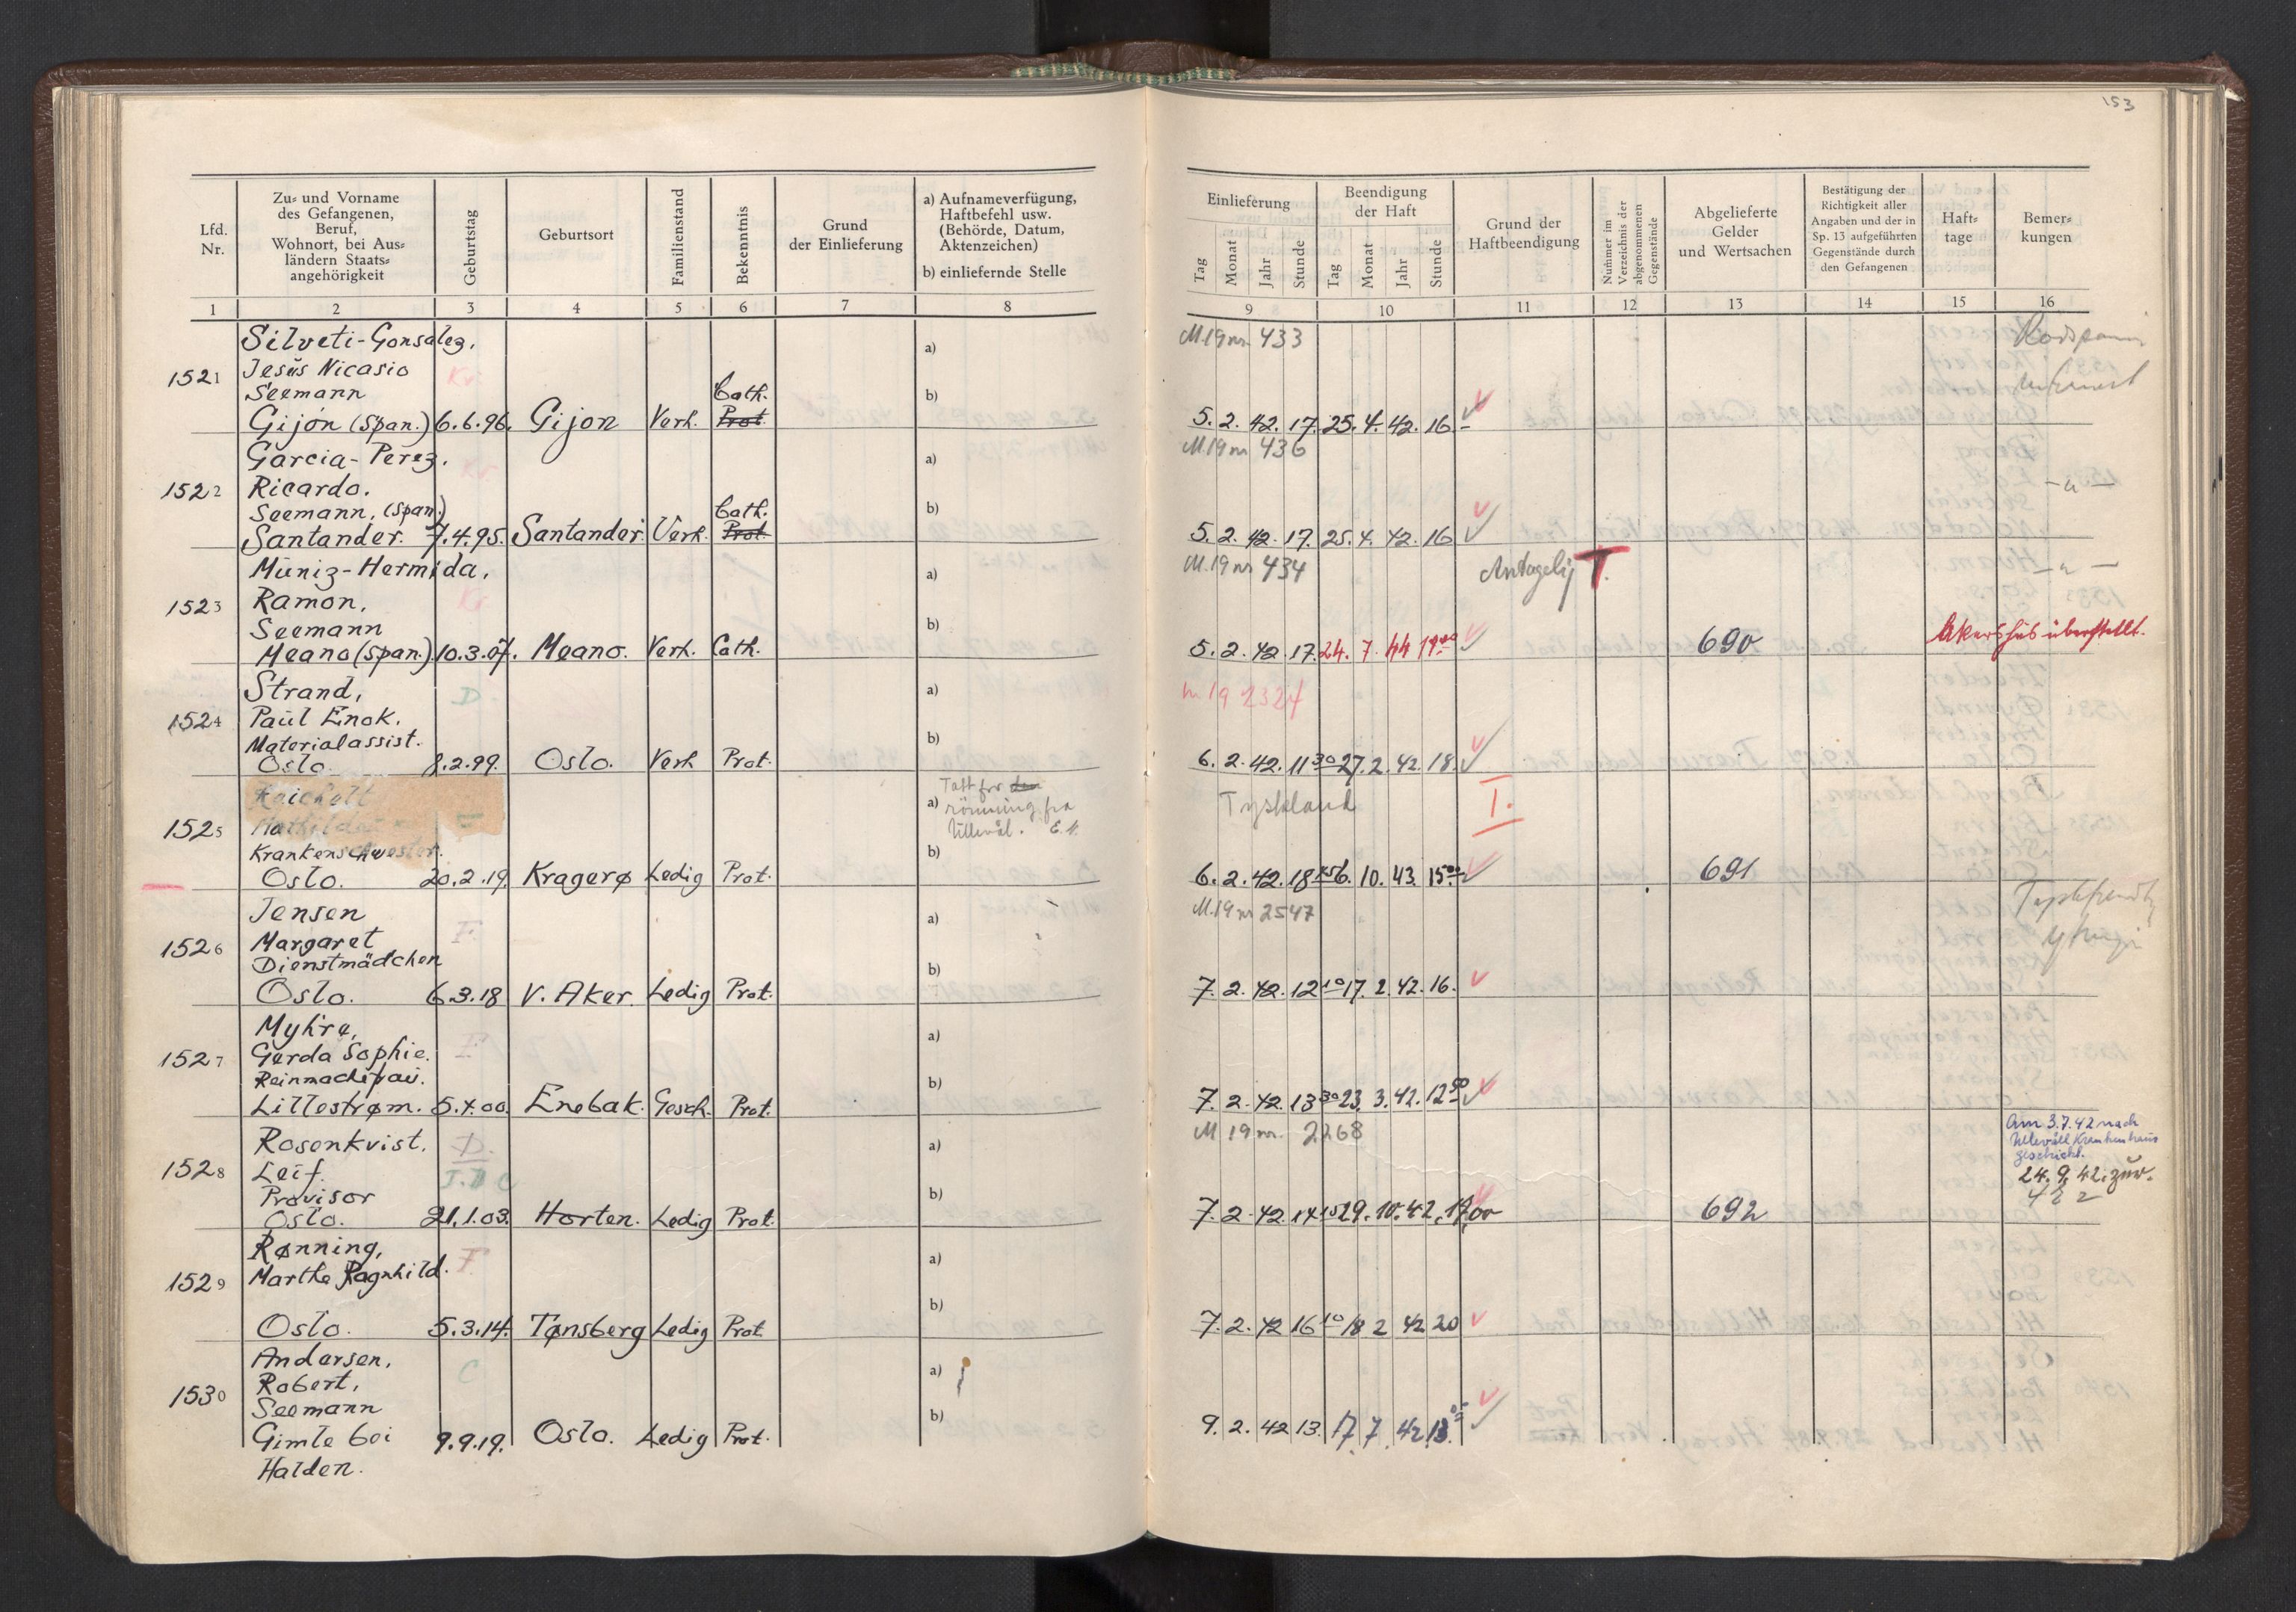 153
Lfd. Nr.
Zu- und Vorname des Gefangenen, Beruf, Wohnort, bei Ausländern Staatsangehörigkeit
Geburtstag
Geburtsort
Familienstand
Bekenntnis
Grund der Einlieferung
a) Aufnameverfügung, Haftbefehl usw. (Behörde, Datum, Aktenzeichen)
b) einliefernde Stelle
Einlieferung
Tag Monat Jahr Stunde
Beendigung der Haft
Tag Monat Jahr Stunde
Grund der Haftbeendigung
Nummer im Verzeichnis der abgenommenen Gegenstände
Abgelieferte Gelder und Wertsachen
Bestätigung der Richtigkeit aller Angaben und der in Sp. 13 aufgeführten Gegenstände durch den Gefangenen
Haft-tage
Bemer-kungen
1 2 3 4 5 6 7 8 9 10 11 12 13 14 15 16
Silveti-Gonsalez, a) M.19 nr 433
1521 Jesús Nicasio Kr.
Seemann Cath. b)
Gijón (Span.) 6.6.96. Gijon Verh. Prot 5. 2. 42. 17. 25. 4. 42. 16
Garcia-Perez, Kr a) M.19 nr 436
1522 Ricardo. - " -
Seemann, (Span.) Cath. b)
Santander. 7.4.95. Santander Verh. Prot. 5. 2. 42. 17. 25. 4. 42. 16
Muniz-Hermida, a) M.19 nr 434 Antagelig T. - " -
1523 Ramon, Kr
Seemann b)
Meano (Span.) 10.3.07. Meano. Verh. Cath. 5. 2. 42. 17. 24. 7. 44 690 Akershus überstellt.
Strand, D a) m 19 2324
1524 Paul Enok.
Materialassist. b)
Oslo. 8.2.99. Oslo. Verh Prot. 6. 2. 42. 11 30 27. 2. 42. 18.
Reichelt Tatt for den a) rönning fra Ullevål. E.N. Tyskland T.
1525 Mathilde
Krankenschwester. b)
Oslo. 20.2.19. Kragerø Ledig Prot. 6. 2. 42. 18 45 6. 10. 43. 15 00 691
Jensen F. a) M.19 nr 2547
1526 Margaret
Dienstmädchen b)
Oslo. 6.3.18 V. Aker. Ledig Prot. 7. 2. 42. 12 10 17. 2. 42. 16.
Myhre, F a)
1527 Gerda Sophie.
Reinmachefrau. b)
Lillestrøm. 5.4.00. Enebak. Gesch. Prot. 7. 2. 42. 13 30 23. 3. 42. 12
Rosenkvist, D. a) M 19 nr. 2268 Am 3.7.42 nach Ullevåll Krankenhaus geschickt.
1528 Leif. J.D C 24. 9. 42. zur.
Provisor b)
Oslo. 21.1.03. Horten. Ledig Prot. 7. 2. 42. 14 15 29. 10. 42. 692
Rønning, F. a)
1529 Marthe Ragnhild.
b)
Oslo. 5.3.14. Tønsberg Ledig Prot. 7. 2. 42 16 10 18 2 42 20
Andersen, C a)
1530 Robert,
Seemann b)
Gimle bei 9.9.19. Oslo. Ledig Prot. 9. 2. 42 13. 17. 7. 42
Halden.